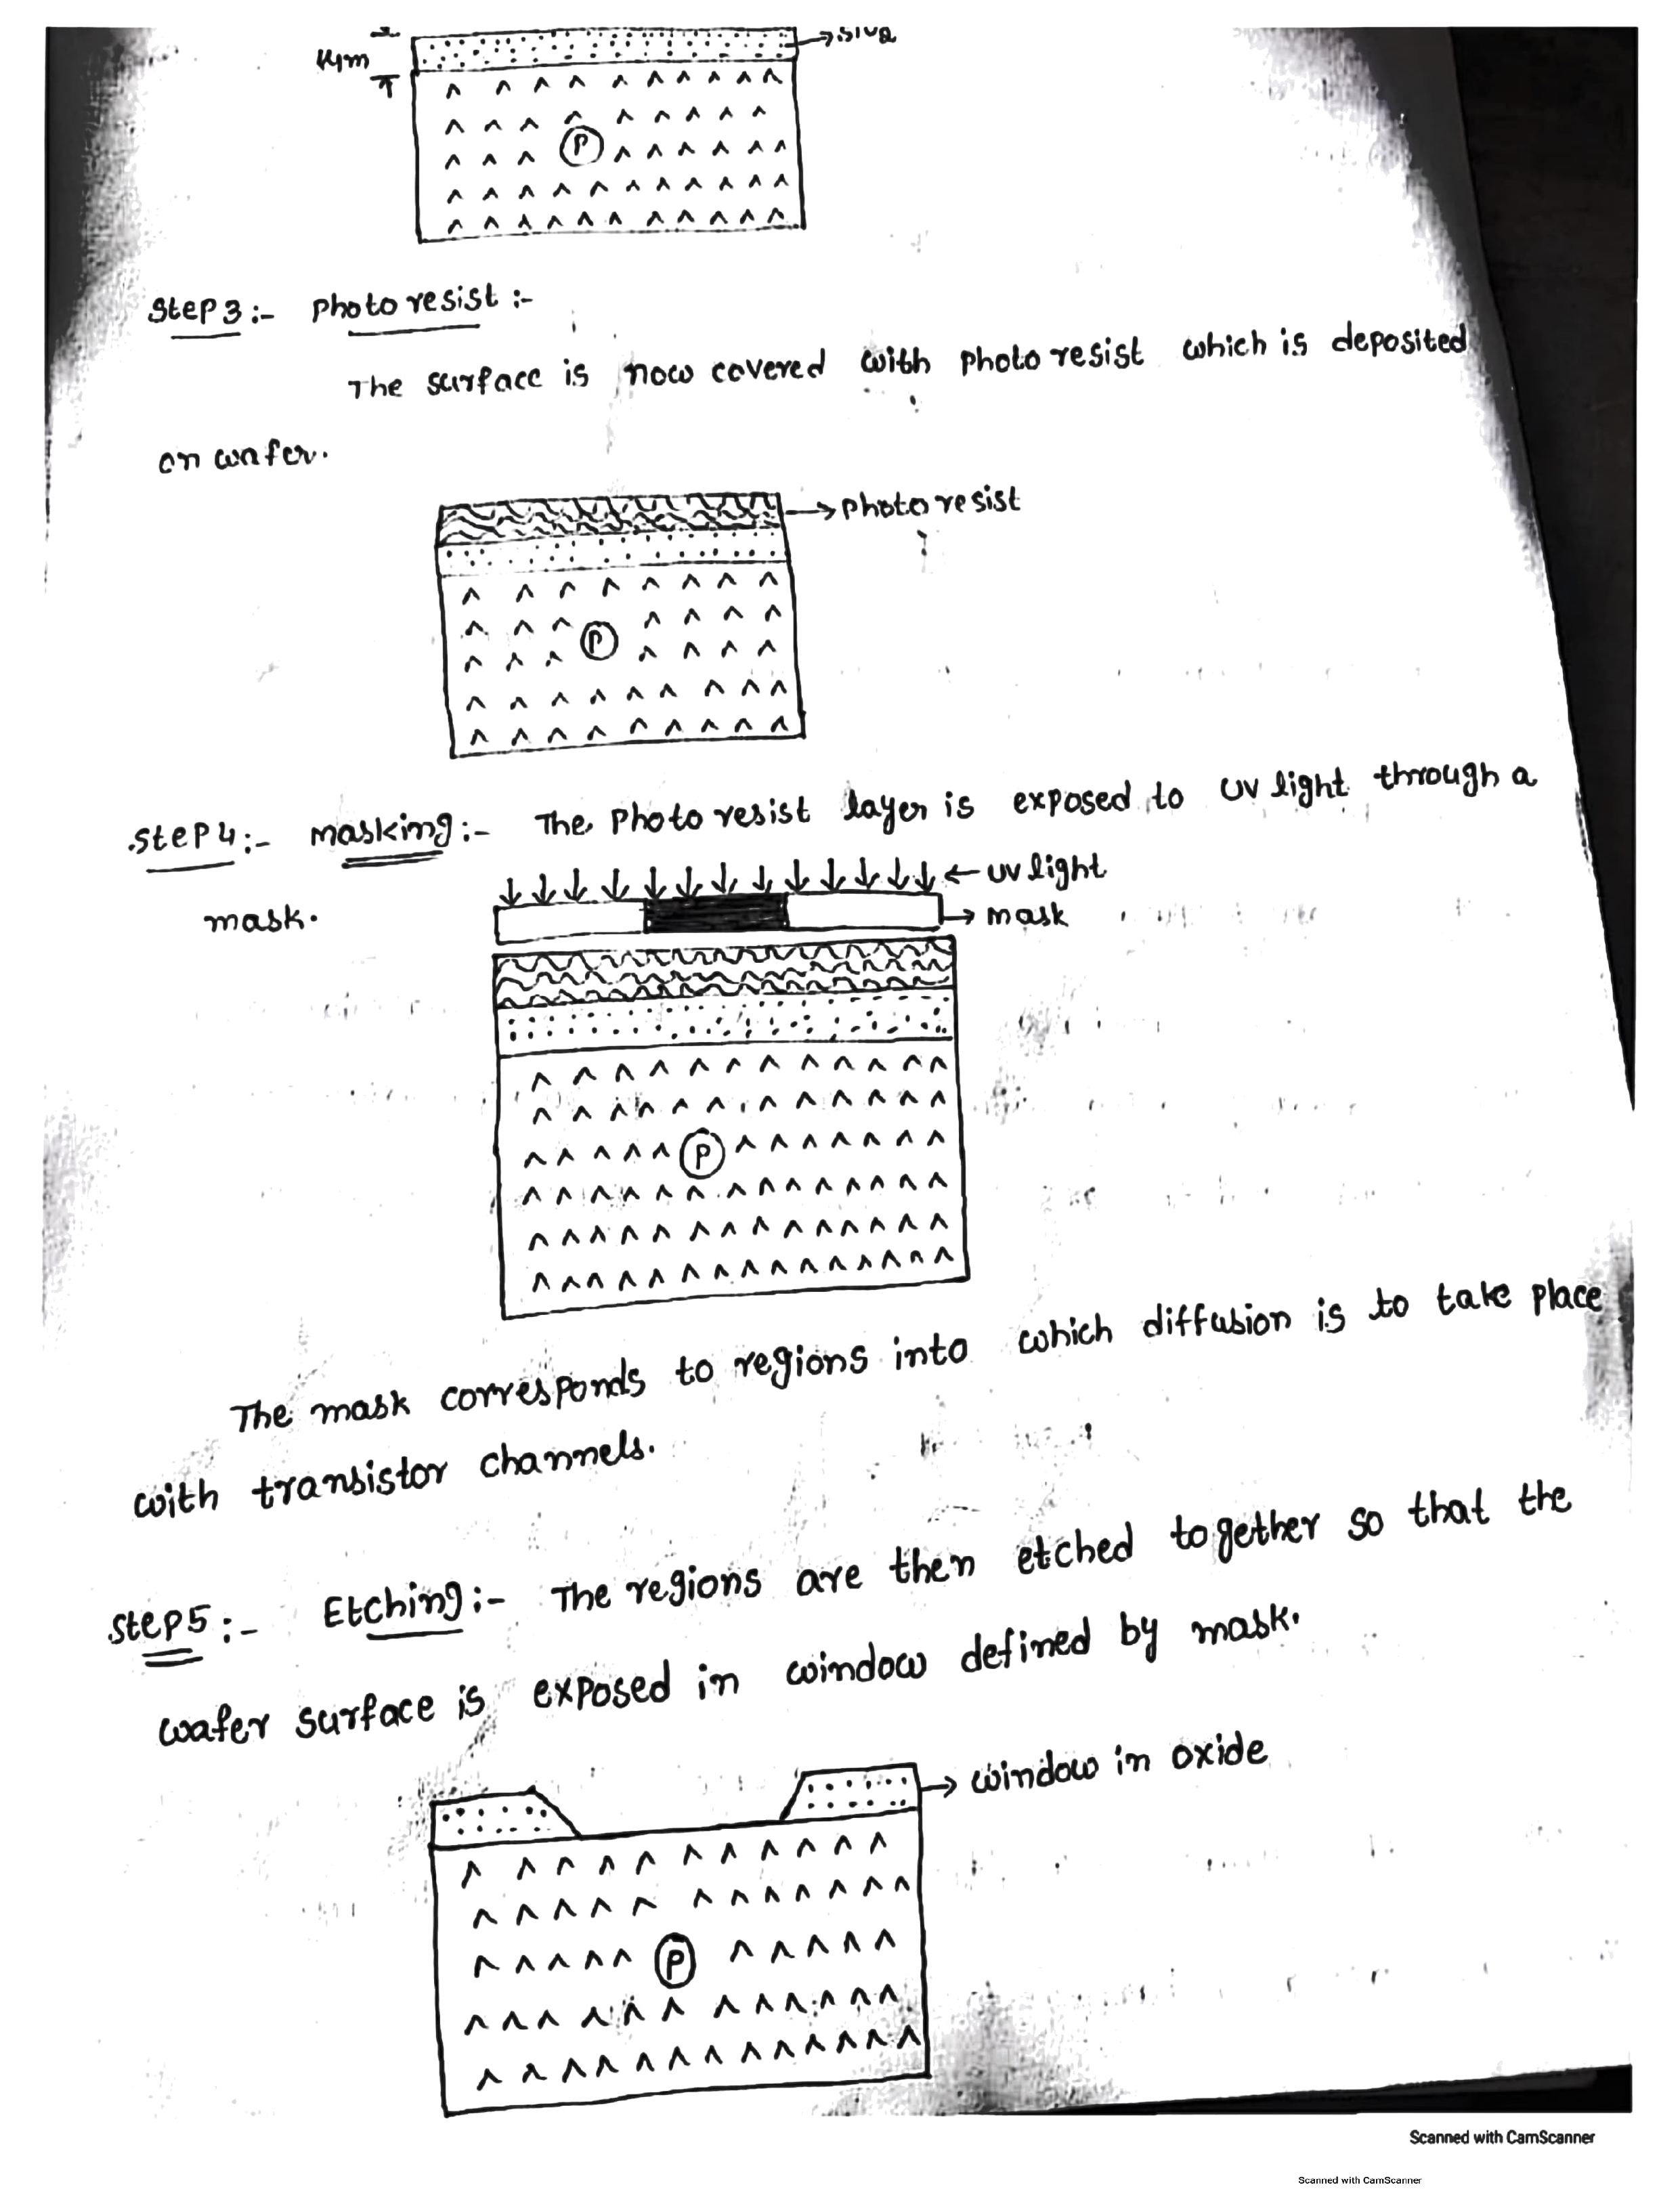 P
Step 3 :- Photo resist :-
The surface is now covered with photo resist which is deposited
on wafer.
→ photo resist
P
Step 4 :- masking :- The photo resist layer is exposed to UV light through a
← UV light
mask.
→ mask
P
The mask corresponds to regions into which diffusion is to take place
with transistor channels.
Step 5 :- Etching :- The regions are then etched together so that the
wafer surface is exposed in window defined by mask.
→ window in oxide
P
Scanned with CamScanner
Scanned with CamScanner